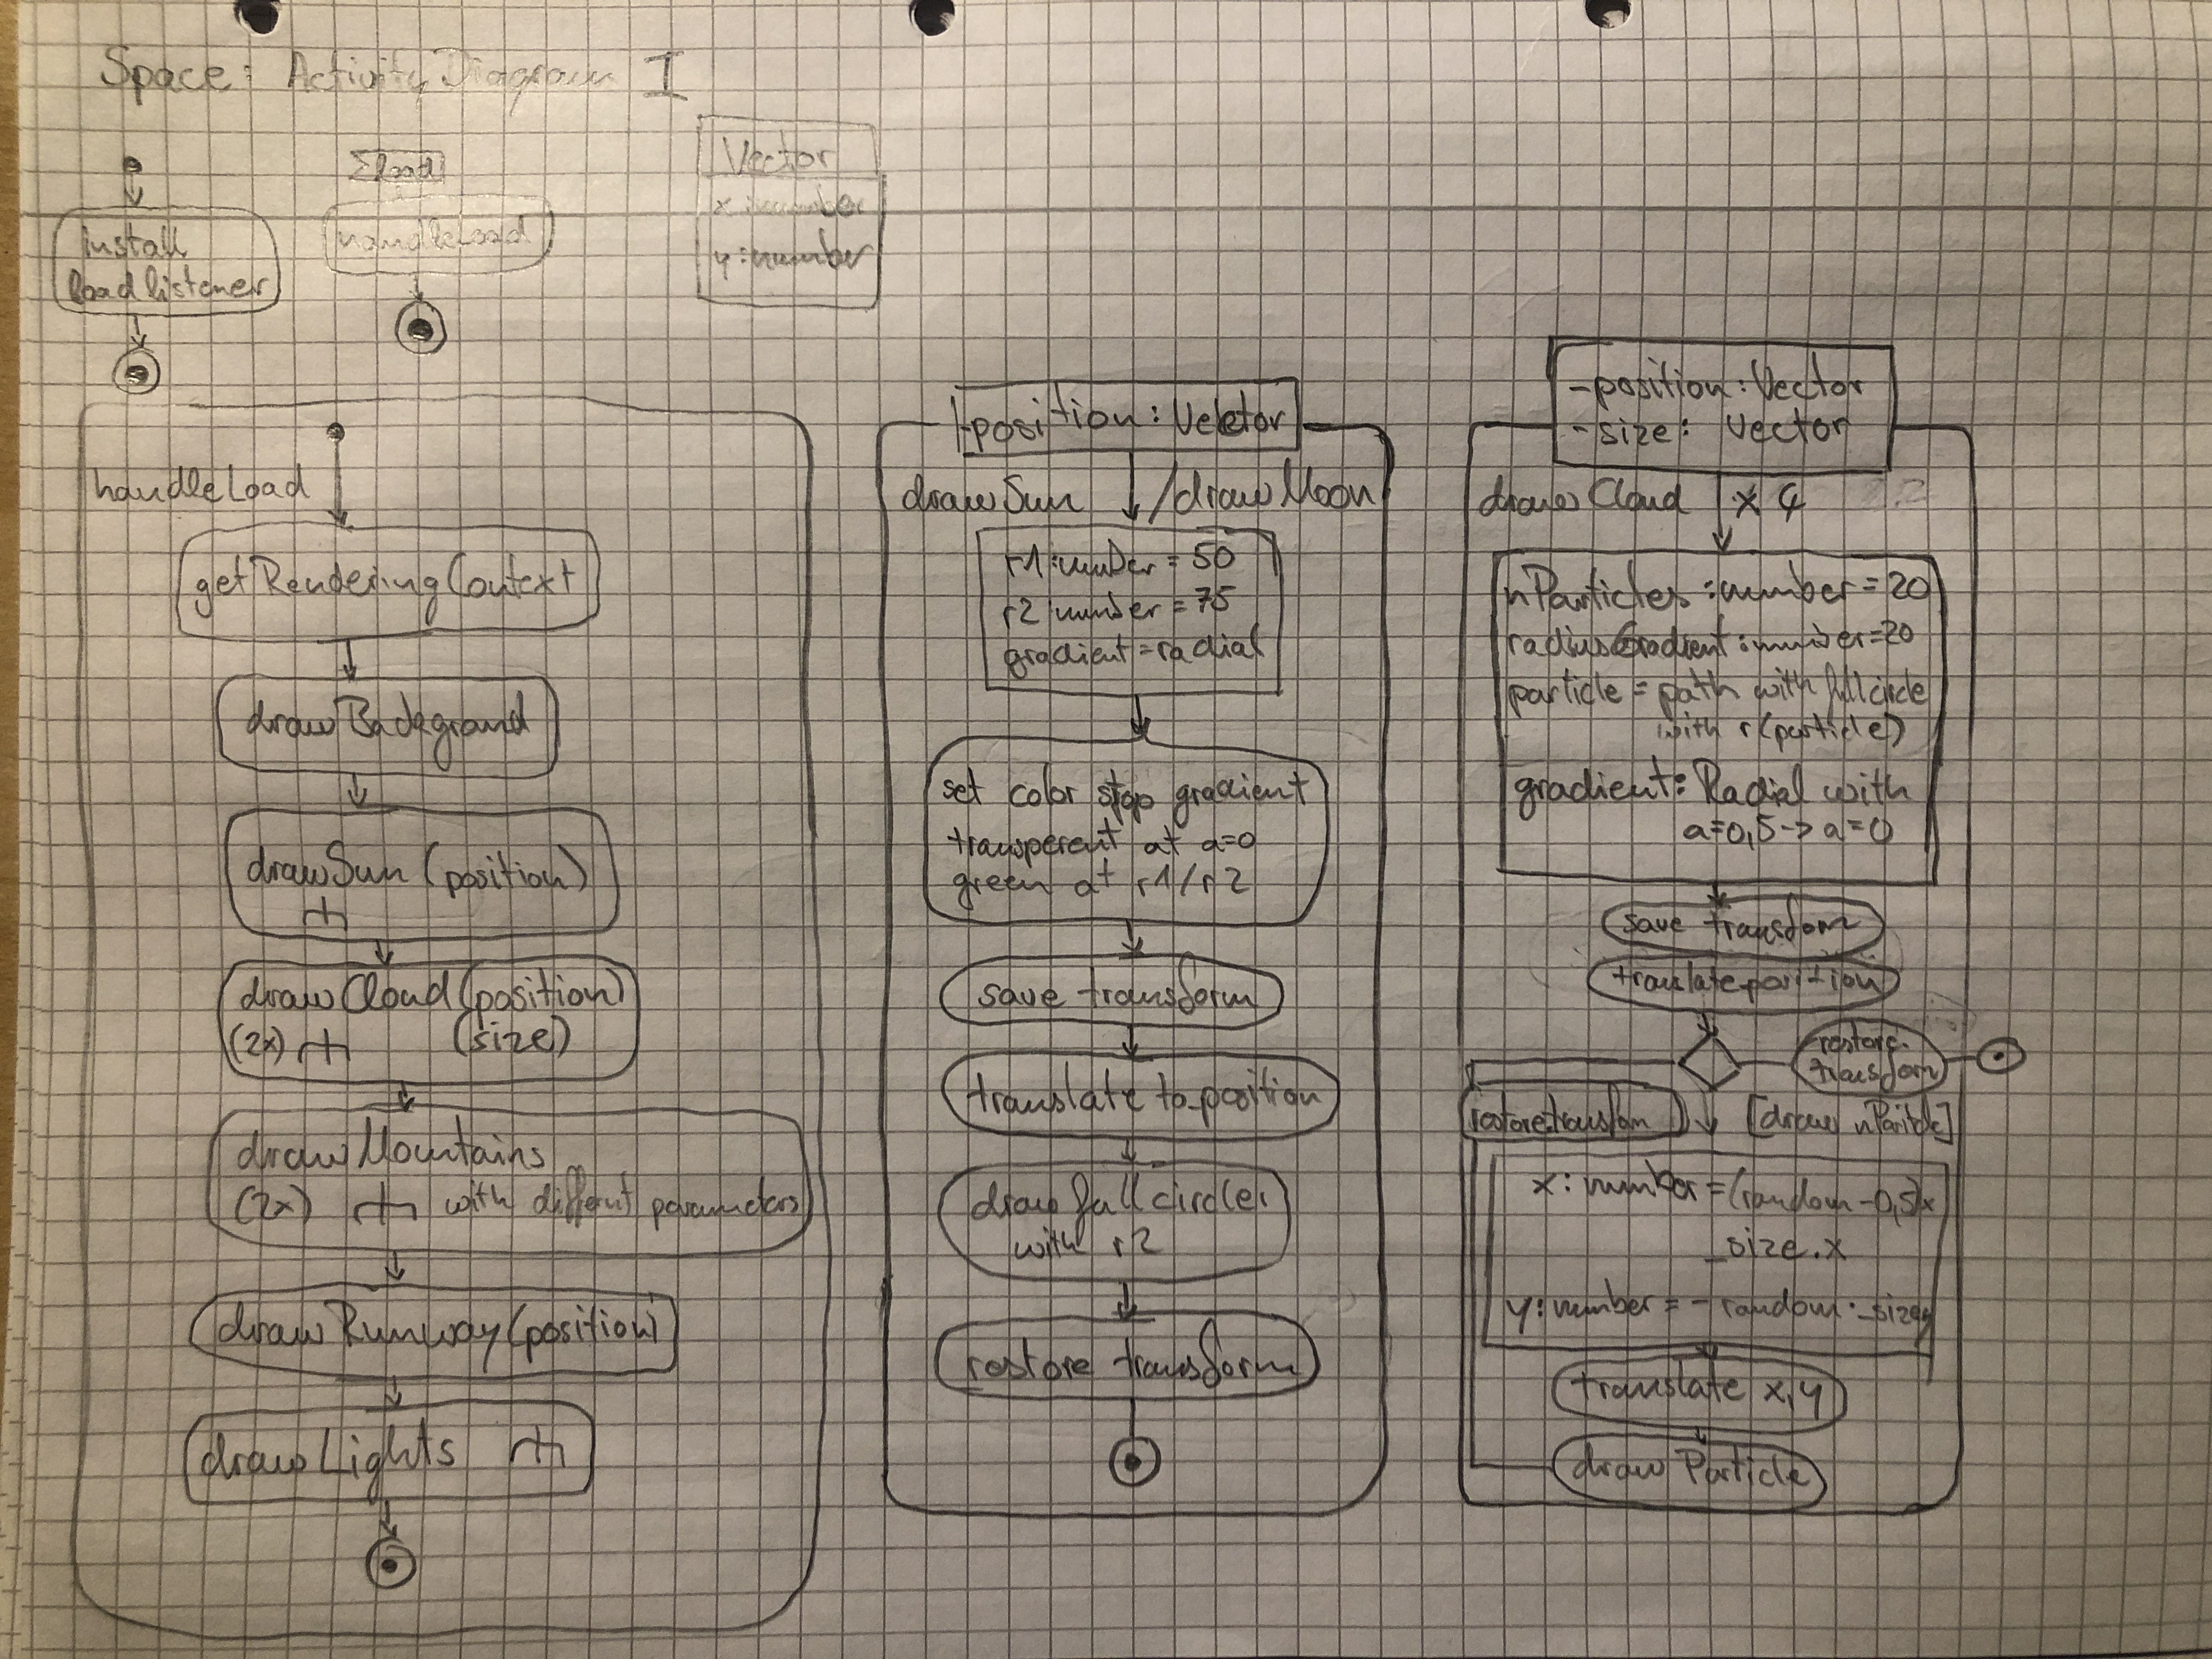 Space: Activity Diagram I
install
load listener
load
handleload
Vector
x: number
y: number
handleLoad
getRenderingContext
drawBackground
drawSun (position)
drawCloud (position)
(2x) (size)
drawMountains
(2x) with diffrent parameters
drawRunway (position)
drawLights
-position: Vektor
drawSun /drawMoon
r1: number = 50
r2: number = 75
gradient = radial
set color stop gradient
transperent at a=0
green at r1/r2
save transform
translate to position
draw full circle
with r2
restore transform
-position: Vector
-size: Vector
drawCloud x4
nParticles: number = 20
radiusGradient: number = 20
particle = path with full circle
with r(particle)
gradient: Radial with
a=0,5 -> a=0
save transform
translate position
restore
transform
restore transform
[draw nParticle]
x: number = (random - 0,5)x
_size.x
y: number = - random · _size y
translate x,y
draw Particle